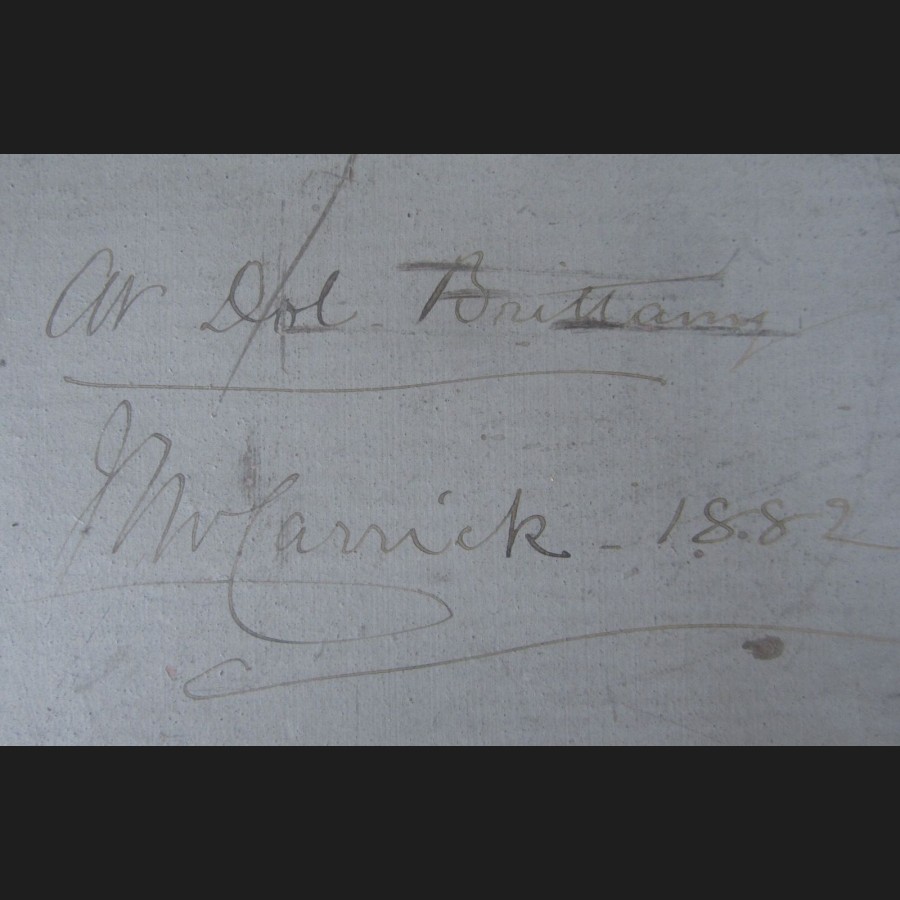 At Dol. Brittany
JM Carrick - 1882